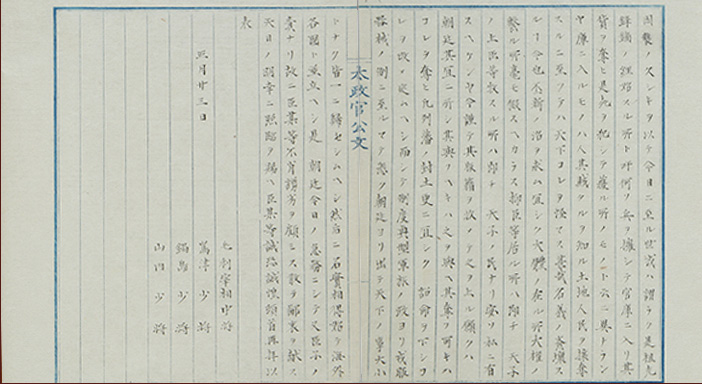 因襲ノ久シキヲ以テ今日ニ至ル世或ハ謂ラク是祖先
鋒鏑ノ経始スル所ト吁何ソ兵ヲ擁シテ官庫ニ入リ其
貨ヲ奪ヒ是死ヲ犯シテ獲ル所ノモノト云ニ異ナラン
ヤ庫ニ入ルモノハ人其賊タルヲ知ル土地人民ヲ攘奪
スルニ至ツテハ天下コレヲ怪マス甚哉名義ノ紊壊ス
ル今也丕新ノ治ヲ求ム宜シク大體ノ在ル所大権ノ
繋ル所毫モ假スヘカラス抑臣等居ル所ハ即チ 天子
ノ土臣等牧スル所ハ即チ 天子ノ民ナリ安ソ私ニ有
スヘケンヤ今謹テ其版籍ヲ収メテ之ヲ上ル願クハ
朝廷其宜ニ所シ其與フヘキハ之ヲ與ヘ其奪フ可キハ
コレヲ奪ヒ凡列藩ノ封土更ニ宜シク 詔命ヲ下シコ
レヲ改メ定ムヘシ而シテ制度典型軍旅ノ政ヨリ戎服
太政官公文
器械ノ制ニ至ルマテ悉ク朝廷ヨリ出テ天下ノ事大小
トナク皆一ニ歸セシムヘシ然后ニ名實相得始テ海外
各國ト並立ヘシ是 朝廷今日ノ急務ニシテ又臣子ノ
責ナリ故ニ臣某等不肖謭劣ヲ顧ミス敢テ鄙衷ヲ献ス
天日ノ明幸ニ照臨ヲ賜ヘ臣某等誠恐誠惶頓首再拜以
表
正月廿三日
毛利宰相中将
島津少将
鍋島少将
山内少将